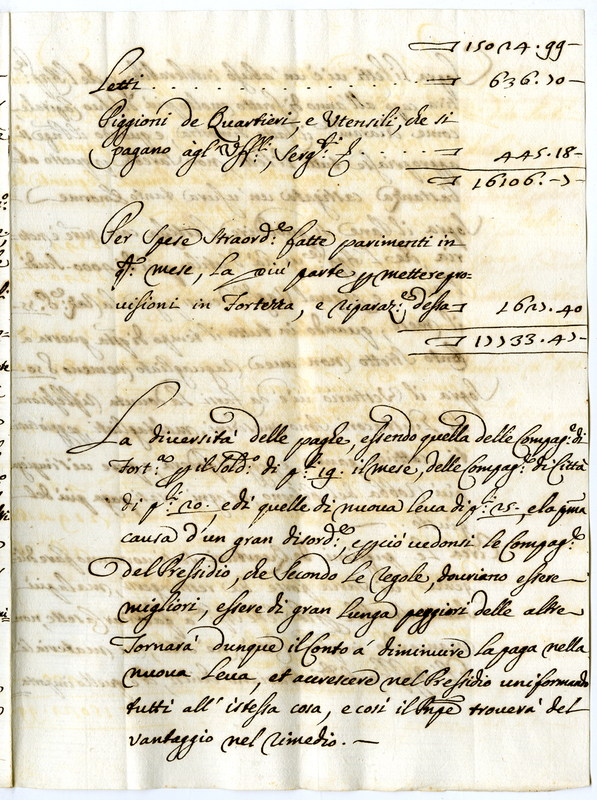 15024.99-
Letti . . . . . . . . . . 636.70-
Piggioni de Quartieri, e Utensili, che si
pagano àgl'Uff.li, Serg.ti . . . . 445.18-
16106.-7-
Per Spese straord.e fatte parimenti in
q.to mese, La più parte p mettere pro=
uisioni in Fortezza, e riparaz.e dessa 1627.40
17733.47-
La diuersità delle paghe, essendo quella delle Compag.e di
Fort.a p il Sold.o di p.li 19. il mese, delle Compag.e di Città
di p.li 20. e di quelle di nuoua Leua di p.li 25. e la pma
causa d'un gran disord.e, e p ciò uedonsi le Compag.e
del Presidio, che Secondo Le regole, douriano essere
migliori, essere di gran lunga peggiori delle altre
Tornarà dunque il Conto à diminuire La paga nella
nuoua Leua, et accrescere nel Presidio uniformando
tutti all'istessa cosa, e così il Pnpe trouerà del
vantaggio nel rimedio. —